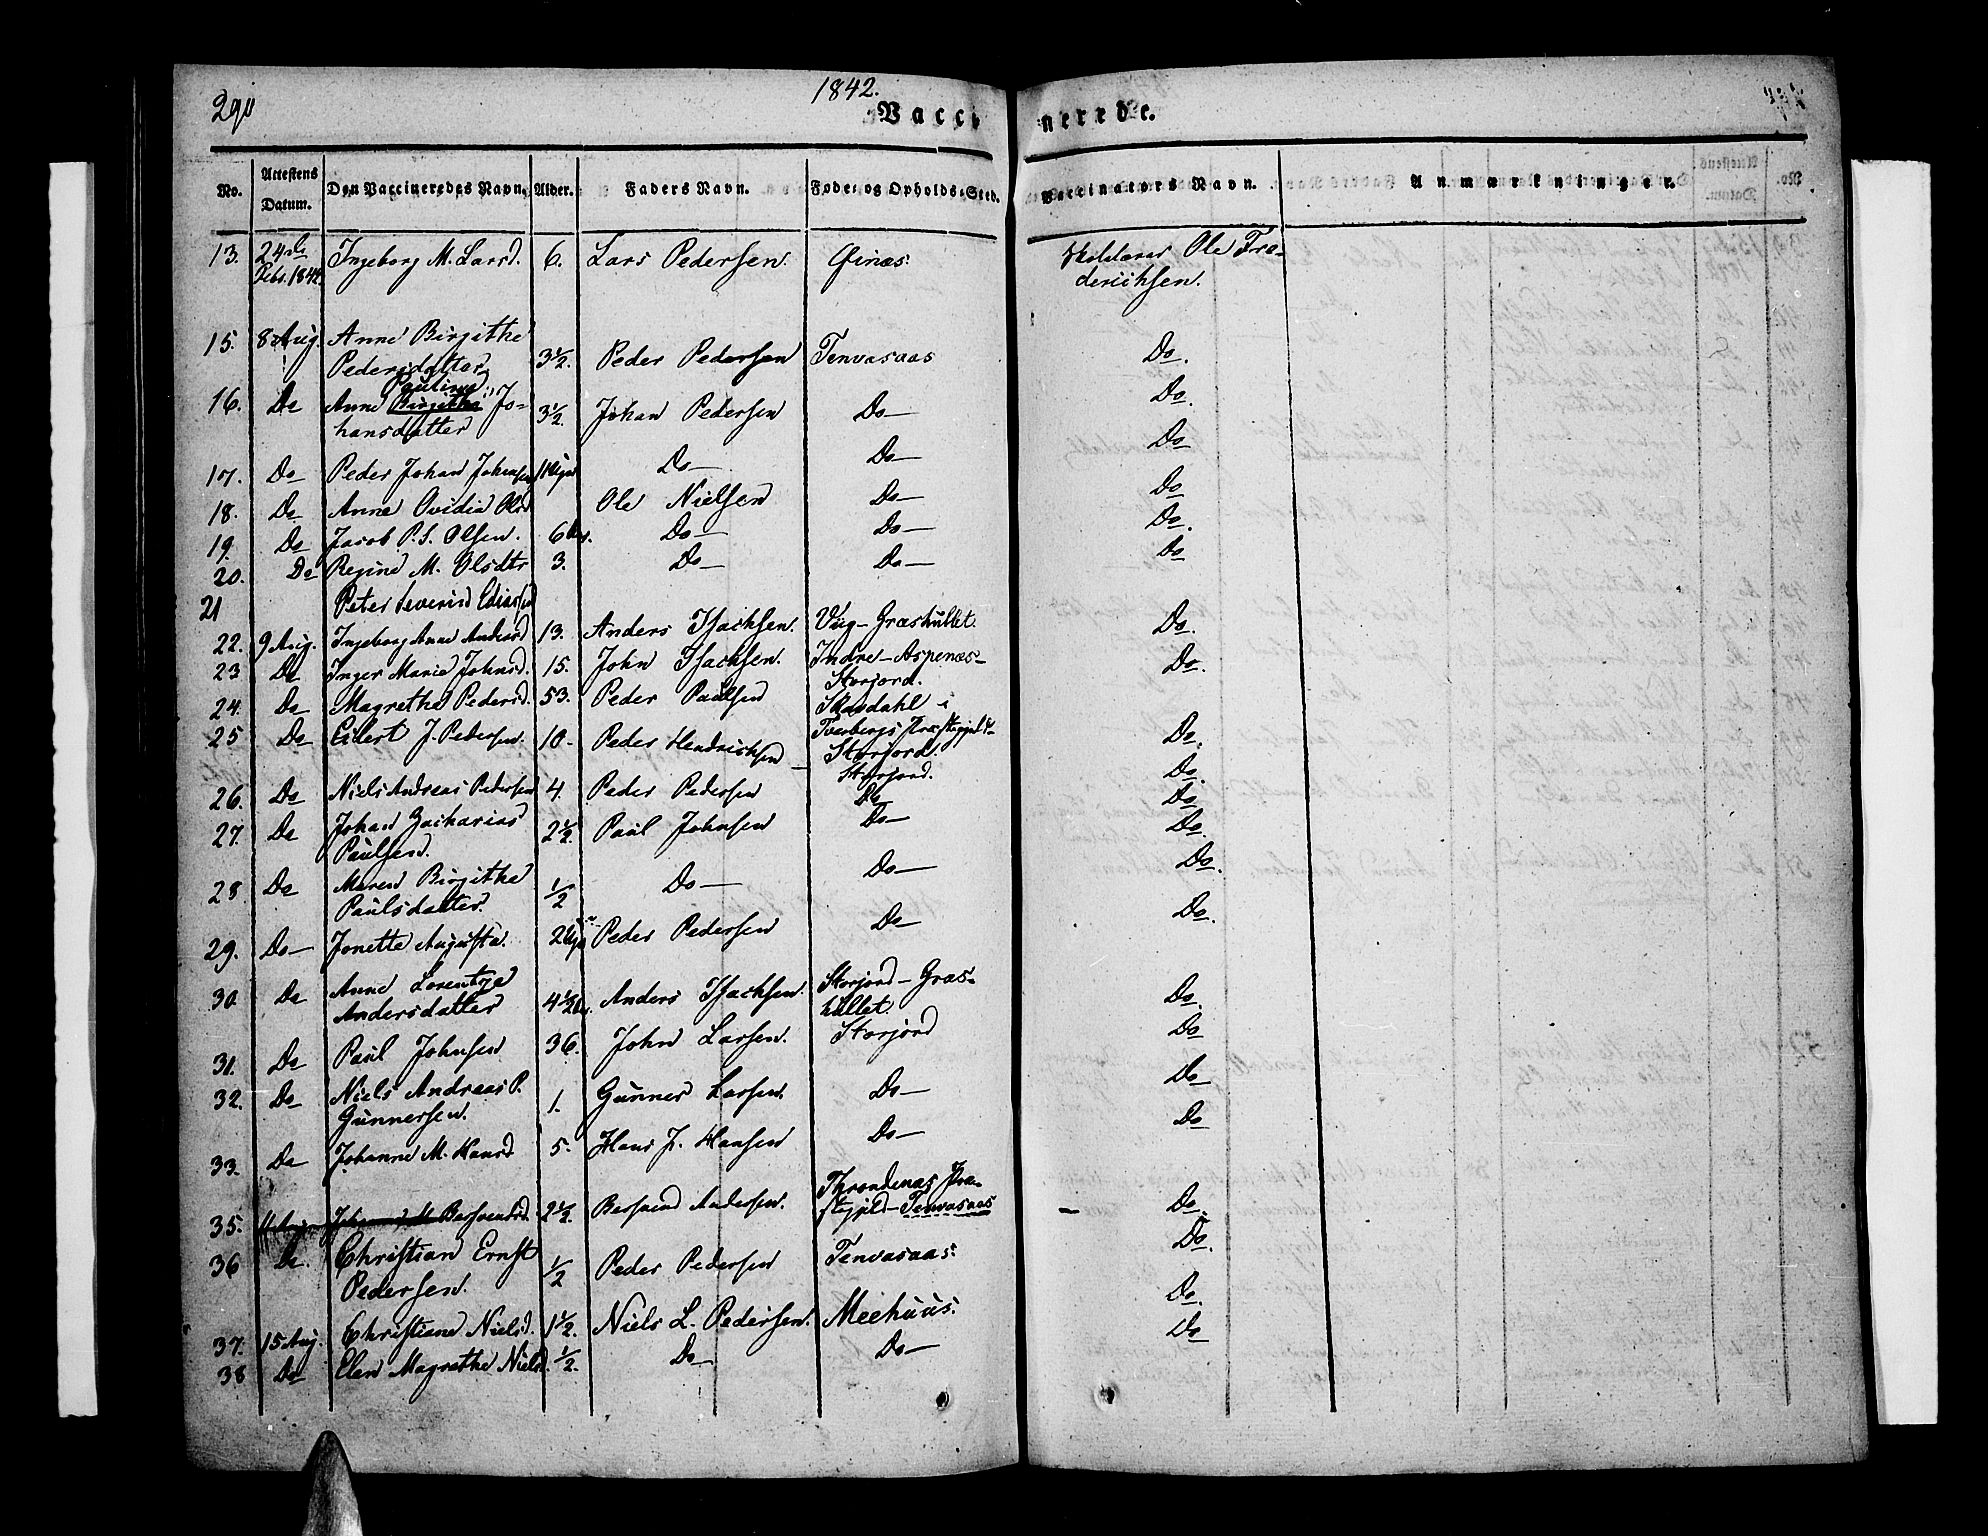 290
1842.
Vaccinerede.
No. Attestens Datum. Den Vaccineredes Navn. Alder. Faders Navn. Føde- og Opholds-Sted. Vaccinators Navn. Anmærkninger.
13. 24de Ingeborg M. Larsd. 6. Lars Pedersen. Skoldærer Ole Fre-
Febr. 1842. derichsen.
15. 8 Aug. Anne Birgithe
Pedersdatter 3½. Peder Pedersen Tenvasaas Do.
Pauline
16. Do Anne Birgitha Jo- 3½ Johan Pedersen Do— Do.
hansdatter
17. Do Peder Johan Johansen 11 Do— Do— Do
18. Do Anne Ovidia Olsd Ole Nielsen Do— Do
19. Do Jacob P. S. Olsen. 6 Do— Do— Do.
20. Do Regine M. Olsdtr 3. Do— Do— Do
21 Peter Severin
22. 9 Aug. Ingeborg Anne Andersd 13. Anders Isachsen. Vüg-Græshullet. Do.
23 Do Inger Marie Johnsd. 15. John Isachsen. Indre-Aspenæs- Do.
Storjord.
24. Do Magrethe Pedersd. 53. Peder Paulsen i
25 Do Eilert J. Pedersen. 10. Peder Hendrichsen Do.
Storjord.
26. Do Niels Andreas Pedersen 4. Peder Pedersen Storjord. Do.
Do Do
27. Do Johan Zacharias 2½. Paul Johnsen Do— Do.
Paulsen.
28. Do Maren Birgithe ½ Do— Do— Do.
Paulsdatter.
29. Do— Jonette Augusta. 2 Peder Pedersen Do— Do.
30. Do Anne Lorentze 4½ Anders Isachsen. Storjord-Græs- Do.
Andersdatter hullet.
31. Do Paul Johnsen 36. John Larsen. Storjord Do
32. Do Niels Andreas P. 1. Gunner Larsen. Do— Do
Gunnersen.
33. Do Johanne M. Hansd 5. Hans J. Hansen Do— Do
Throndenæs Præ-
35. 11 Aug. Johanna M Bersvendsd. 2½. Bersvend Andersen. stegjeld-Tenvasaas Do.
36 Do Christian Ernst ½ Peder Pedersen Tenvasaas. Do.
Pedersen.
37. 15 Aug. Christiane Nielsd. 1½. Niels L. Pedersen. Meehuus. Do.
38 Do Elen Magrethe Nielsd. ½. Do— Do— Do